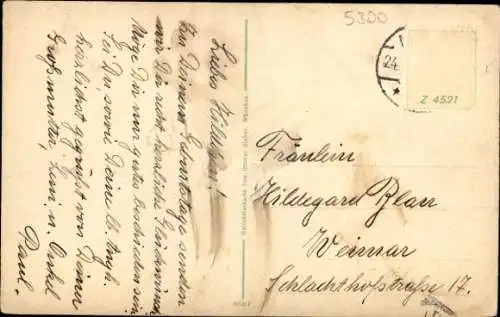 Liebes Hildchen!
Zu Deinem Geburtstage senden
wir Dir recht herzliche Glückwünsche
Möge Dir nur gutes beschieden sein.
Sei Du sowie Deine lb. Angh.
herzlichst gegrüßt von Deiner
Großmutter, Leni u. Onkel
Paul.
5300
24.
Z 4521
Fräulein
Hildegard Blau
Weimar
Schlachthofstraße 17.